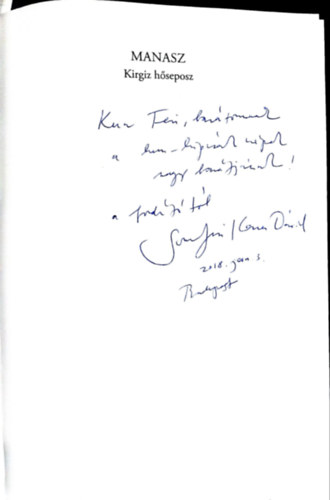 MANASZ
Kirgiz hőseposz
Feri, barátomnak
a
nagy barátjának!
a fordítótól
Somfai Kara Dávid
2018. jan. 3.
Budapest